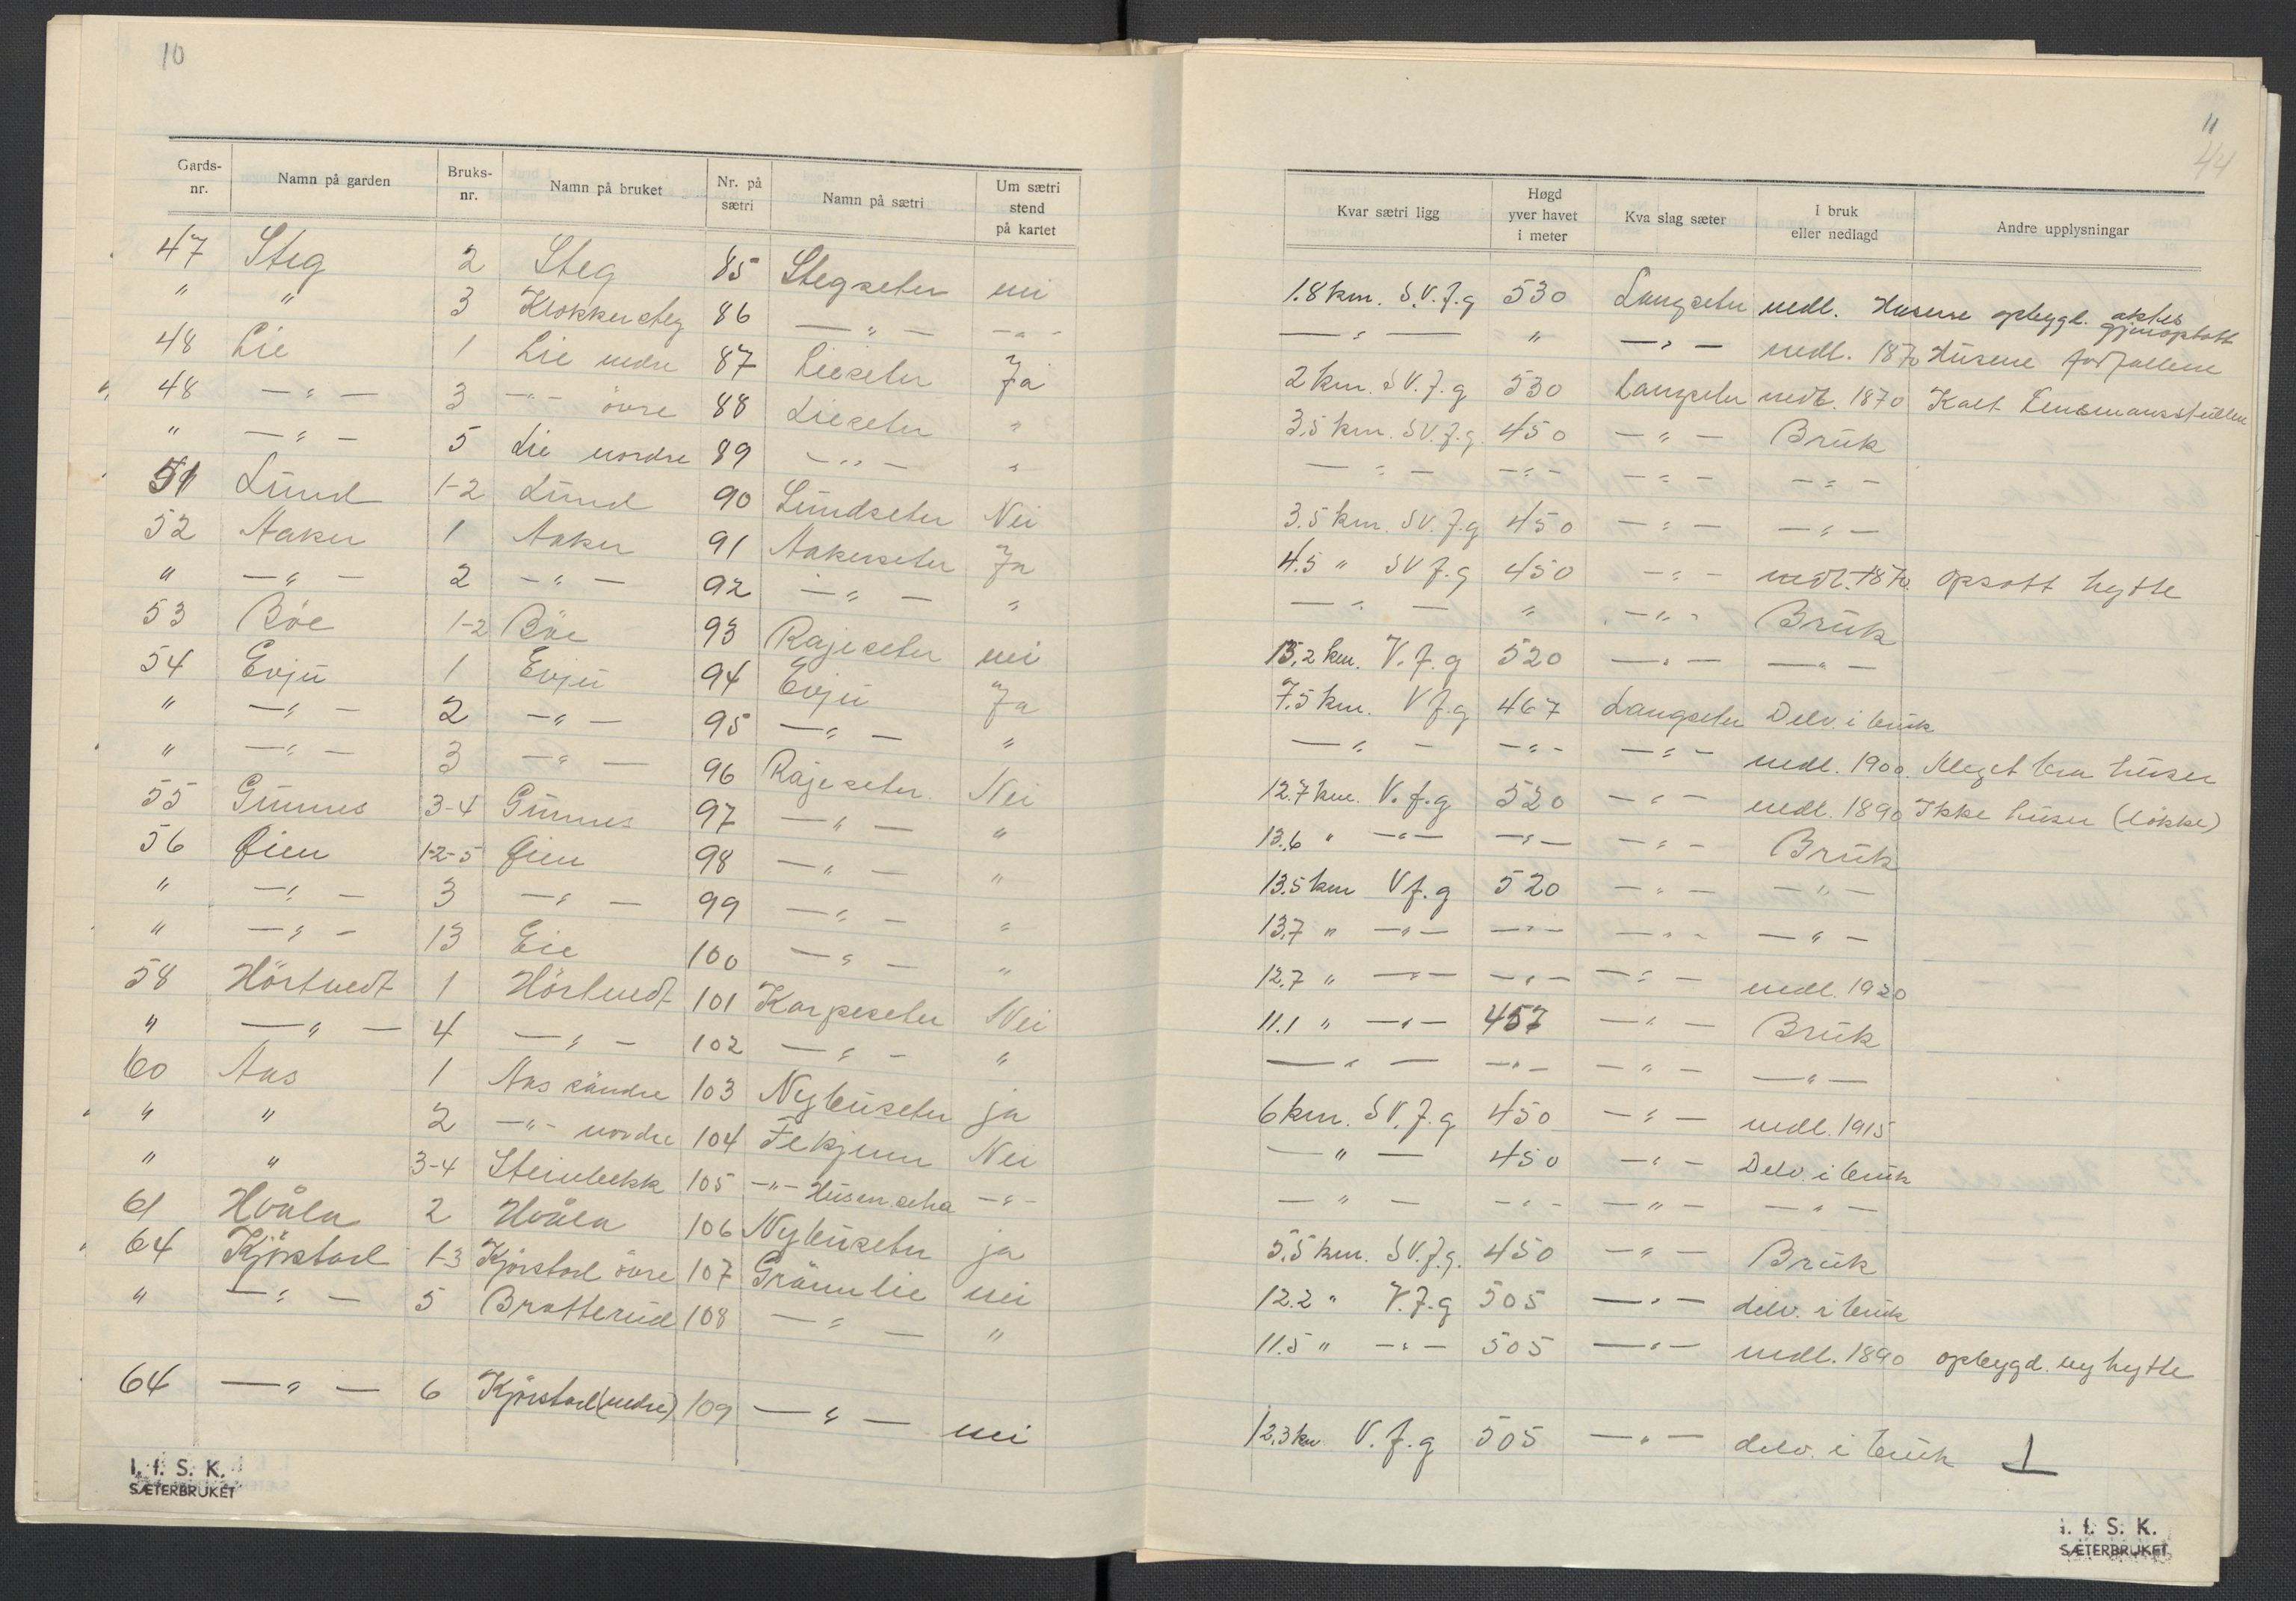 10
Gards-nr. Namn på garden Bruks-nr. Namn på bruket Nr. på sætri Namn på sætri Um sætri stend på kartet
47 Steg 2 Steg 85 Stegseter nei
" " 3 Klokkersteg 86 — " — — " —
48 Lie 1 Lie nedre 87 Lieseter Ja
48 — " — 3 — " — övre 88 Lieseter "
" — " — 5 Lie nordre 89 — " — "
51 Lund 1-2 Lund 90 Lundseter Nei
52 Aaker 1 Aaker 91 Aakerseter Ja
" — " — 2 — " — 92 — " — "
53 Böe 1-2 Böe 93 Rajeseter nei
54 Evju 1 Evju 94 Evju Ja
" — " — 2 — " — 95 — " — "
" — " — 3 — " — 96 Rajeseter Nei
55 Gunnes 3-4 Gunnes 97 — " — "
56 Øien 1-2-5 Øien 98 — " — "
" — " — 3 — " — 99 — " — "
" — " — 13 Eie 100 — " — "
58 Hörtvedt 1 Hörtvedt 101 Karpeseter Nei
" — " — 4 — " — 102 — " — "
60 Aas 1 Aas söndre 103 Nybuseter ja
" " 2 — " — nordre 104 Fekjenn Nei
" " 3-4 Steinbekk 105 — " — — " —
61 Hvåla 2 Hvåla 106 Nybuseter ja
64 Kjörstad 1-3 Kjörstad övre 107 Grönnlie nei
" — " — 5 Bratterud 108 — " — "
64 — " — 6 Kjörstad (nedre) 109 — " — nei
I. f. S. K.
SÆTERBRUKET
11
44
Kvar sætri ligg Høgd yver havet i meter Kva slag sæter I bruk eller nedlagd Andre upplysningar
1.8 km. S.V.f.g 530 Langseter nedl. Husene opbygd. aktes gjenoptatt
— " — " — " — nedl. 1870 Husene forfallene
2 km. SV.f.g 530 Langseter nedl. 1870 Kalt Lensmansstullen
3.5 km. SV.f.g. 450 — " — Bruk
— " — — " — — " — — " —
3.5 km. SV.f.g 450 — " — — " —
4.5 " SV f.g 450 — " — nedl. 1870. opsatt hytte
— " — " — " — Bruk
13,2 km. V.f.g 520 — " — — " —
7.5 km. V f.g 467 Langseter Delv. i bruk
— " — — " — — " — nedl. 1900. Meget bra huser
12.7 km. V.f.g 520 — " — nedl. 1890 Ikke huser (løkke)
13.6 " — " — — " — — " — Bruk
13.5 km V f.g 520 — " — — " —
13.7 " — " — — " — — " — — " —
12.7 " — " — — " — — " — nedl. 1920
11.1 " — " — 457 — " — Bruk
— " — — " — — " — — " —
6 km. S V.f.g 450 — " — nedl. 1915
— " — 450 — " — Delv. i bruk
— " — — " — — " — — " —
5,5 km. SV.f.g. 450 — " — Bruk
12.2 " V.f.g 505 — " — delv. i bruk
11.5 " — " — 505 — " — nedl. 1890 opbygd. ny hytte
12.3 km V.f.g 505 — " — delv. i bruk 1
I. f. S. K.
SÆTERBRUKET